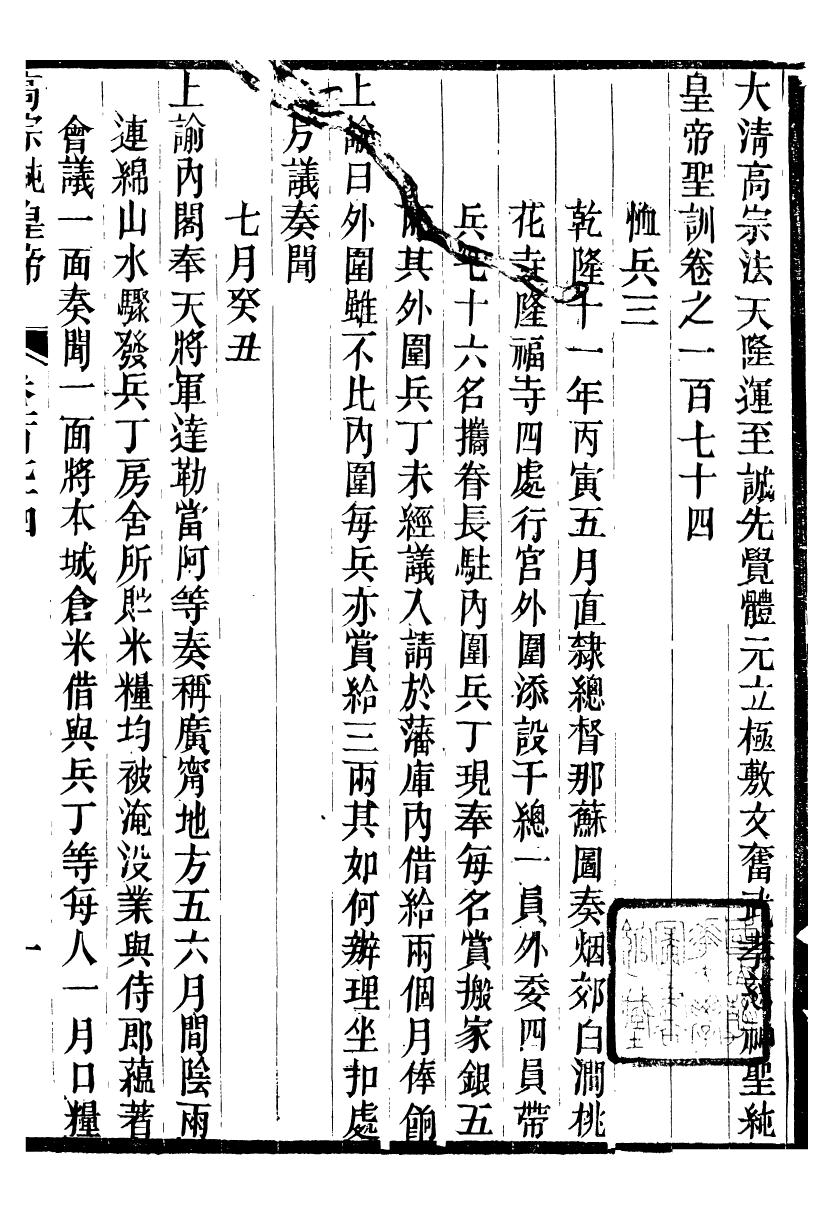 大清高宗法天隆運至誠先覺體元立極敷文奮武孝慈神聖純
皇帝聖訓卷之一百七十四
恤兵三
乾隆十一年丙寅五月直隸總督那蘇圖奏烟郊白澗桃
花寺隆福寺四處行宫外圍添設千總一員外委四員帶
兵七十六名攜眷長駐內圍兵丁現奉每名賞搬家銀五
兩其外圍兵丁未經議入請於藩庫內借給兩個月俸餉
上諭曰外圍雖不比內圍每兵亦賞給三兩其如何辦理坐扣處
另議奏聞
七月癸丑
上諭內閣奉天將軍達勒當阿等奏稱廣甯地方五六月間陰雨
連綿山水驟發兵丁房舍所貯米糧均被淹没業與侍郎蘊著
會議一面奏聞一面將本城倉米借與兵丁等每人一月口糧
高宗純皇帝
一